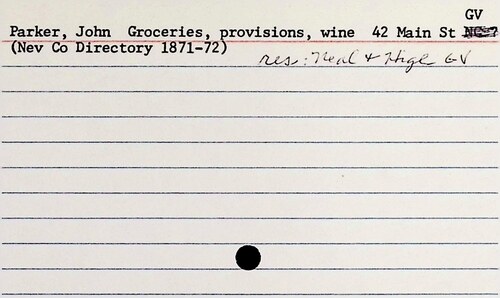 GV
Parker, John Groceries, provisions, wine 42 Main St NC ?
(Nev Co Directory 1871-72)
res: Neal & High GV